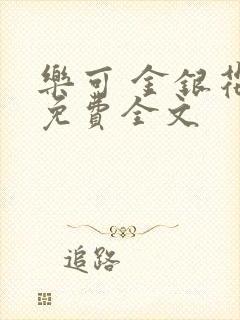 樂可 金銀花
免費全文
追路